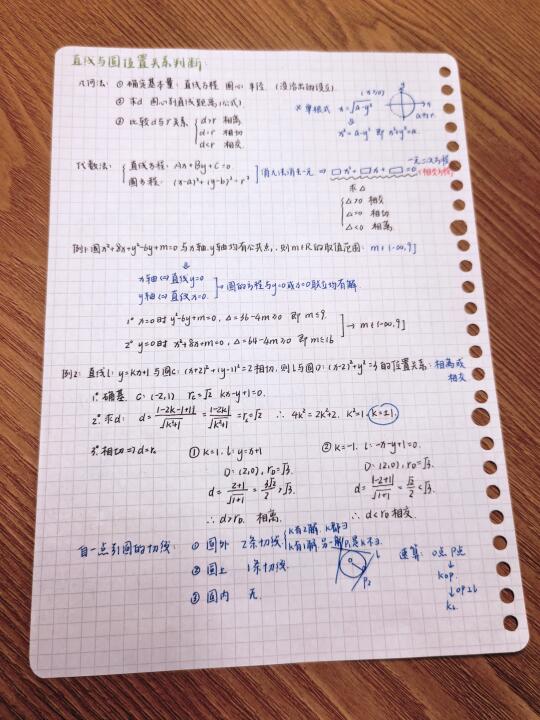 直线与圆位置关系判断
几何法: ① 确定基本量: 直线方程 圆心 半径. (没给出的设立)
② 求d 圆心到直线距离(公式)
③ 比较d与r关系 { d>r 相离
d=r 相切
d<r 相交
※ 单根式 x=√a-y² (x≥0)
⇓
x²=a-y² 即 x²+y²=a.
代数法: { 直线方程: Ax+By+C=0
圆方程: (x-a)²+(y-b)²=r²
消元法消去一元 ⇒ □x²+□x+□=0
一元二次方程
(相交方程)
求△
{ △>0 相交
△=0 相切
△<0 相离
例1: 圆x²+8x+y²-6y+m=0与x轴.y轴均有公共点, 则m∈R的取值范围: m∈(-∞,9]
⇓
x轴⇔直线y=0
y轴⇔直线x=0
→圆的方程与y=0或x=0联立均有解.
1° x=0时 y²-6y+m=0, △=36-4m≥0 即 m≤9.
2° y=0时 x²+8x+m=0, △=64-4m≥0 即m≤16
→ m∈(-∞,9]
例2: 直线l: y=kx+1与圆C: (x+2)²+(y-1)²=2相切, 则l与圆D: (x-2)²+y²=3的位置关系: 相离或
相交
1° 确基 C: (-2,1) rc=√2 kx-y+1=0.
2° 求d: d=|-2k-1+1|/√k²+1=|-2k|/√k²+1=rc=√2 ∴ 4k²=2k²+2. k²=1. k=±1.
3° 相切⇒d=rc ① k=1. l: y=x+1 ② k=-1. l: -x-y+1=0.
D: (2,0), rD=√3. D: (2,0), rD=√3.
d=|2+1|/√1+1=3√2/2>√3. d=|-2+1|/√1+1=√2/2<√3.
∴ d>rD. 相离. ∴ d<rD 相交.
自一点到圆的切线: ① 圆外 2条切线 { k有2解. k都∃
k有1解. 另一解P₂是k不∃.
② 圆上 1条切线.
③ 圆内 无.
速算: O点 P点
↓
kOP.
↓OP⊥l
kl